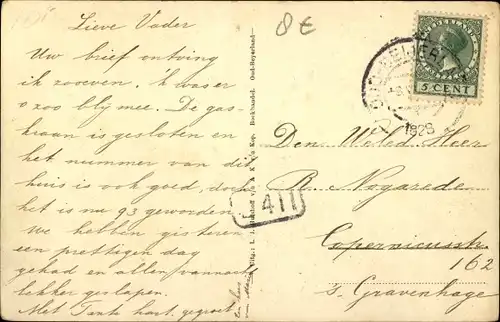 Lieve Vader
Uw brief ontving
ik zooeven. 'k was er
o zoo blij mee. De gas-
kraan is gesloten en
het nummer van dit
huis is ook goed, doch
het is nu 93 geworden
We hebben gisteren
een prettigen dag
gehad en allen vannacht
lekker geslapen.
Met Tante hart. gegroet
8€
Boekhandel. Oud-Beyerland
411
5 CENT
1928
Den Weled. Heer
B. Nogarede
Copernicusstr.
162
's Gravenhage